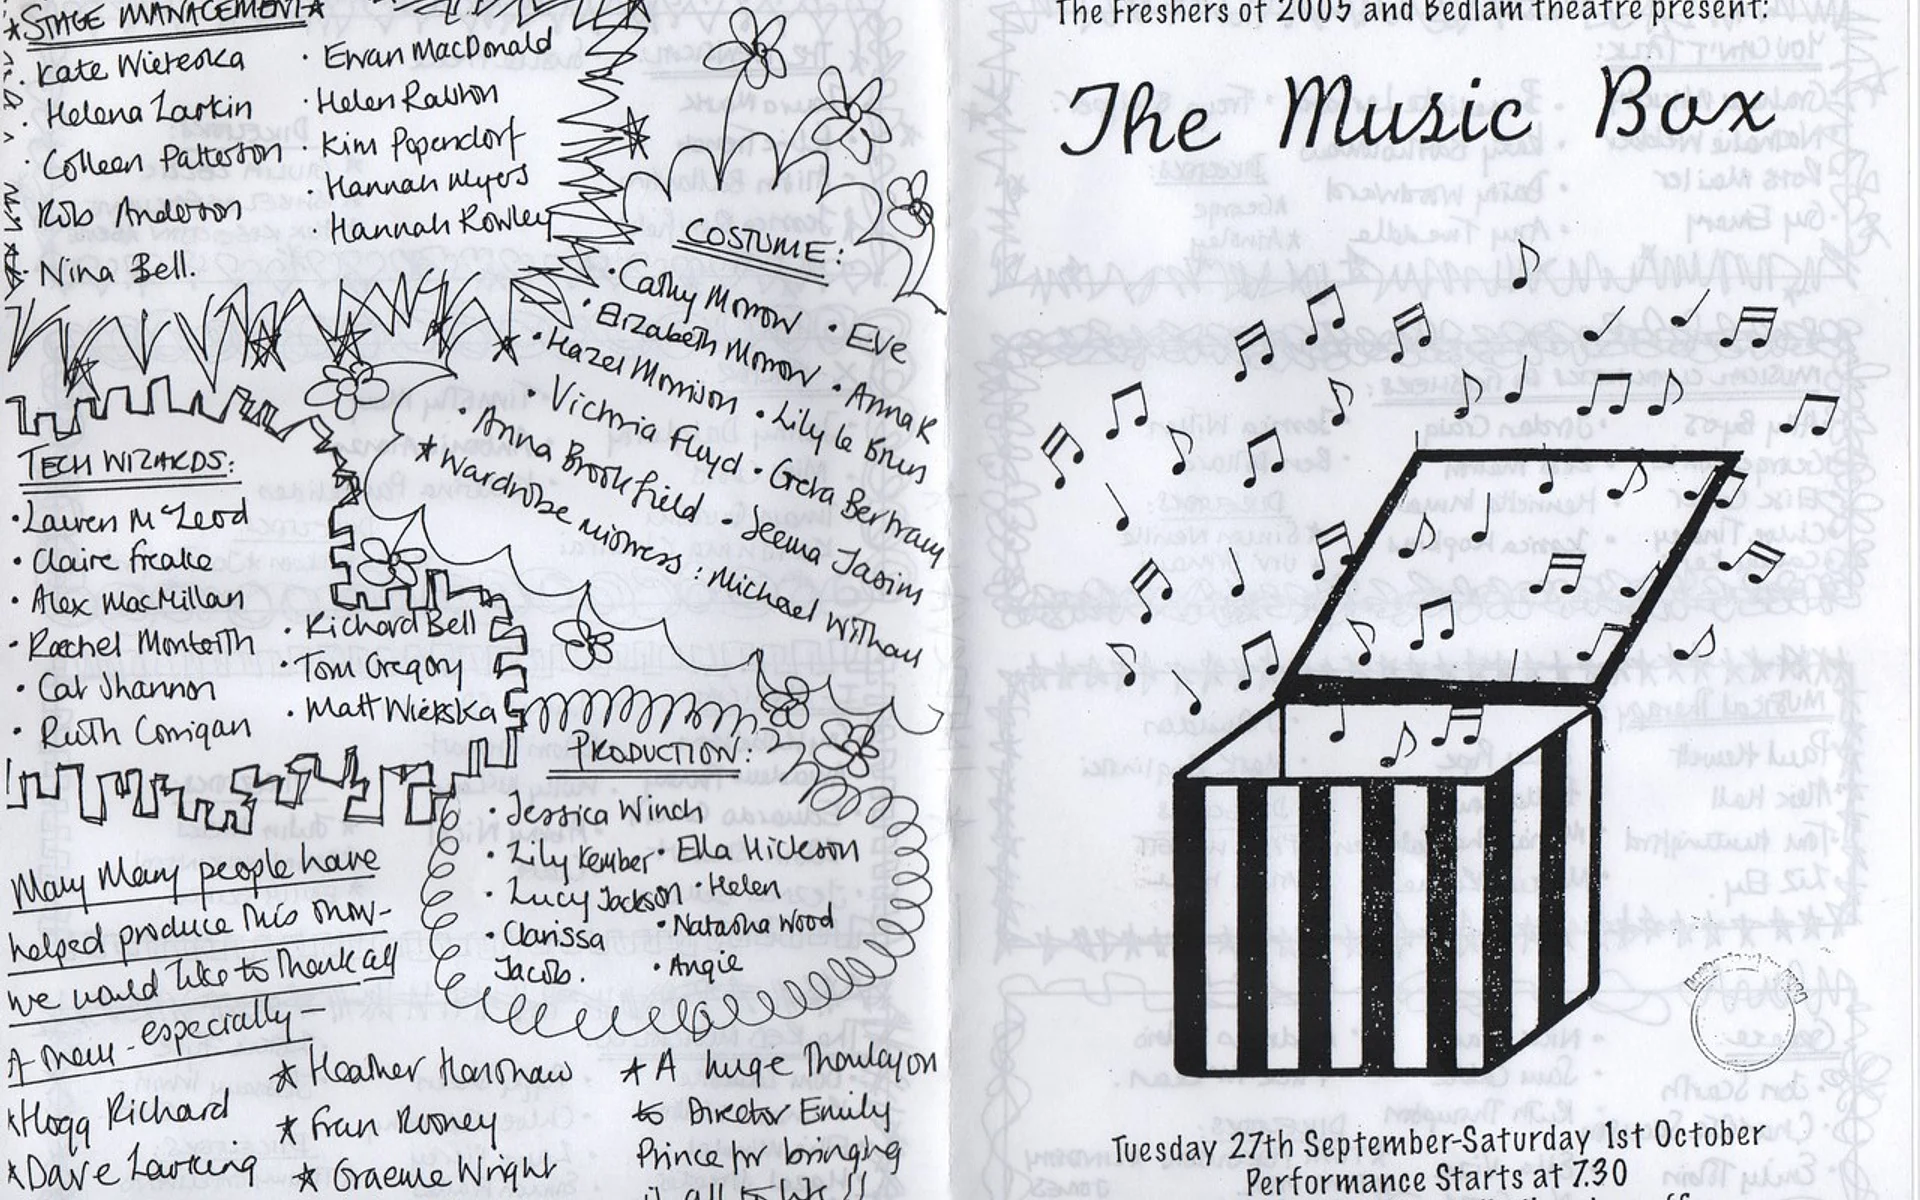 ★STAGE MANAGEMENT★
· Kate Wieteska
· Helena Larkin
· Colleen Patterson
· Rob Anderson
· Nina Bell.
· Ewan MacDonald
· Helen Ralston
· Kim Popendorf
· Hannah Myers
· Hannah Rowley
COSTUME:
· Cathy Morrow
· Eve
· Elizabeth Morrow
· Anna K
· Hazel Morrison
· Lily le Brun
· Victoria Fluyd
· Greta Bertram
· Anna Brookfield
· Seema Jasim
★ Wardrobe mistress: Michael Withan
TECH WIZARDS:
· Lauren McLeod
· Claire Freake
· Alex MacMillan
· Rachel Monteith
· Cat Shannon
· Ruth Corrigan
· Richard Bell
· Tom Gregory
· Matt Wieteska
PRODUCTION:
· Jessica Winch
· Lily Kember
· Ella Hickson
· Lucy Jackson
· Helen
· Clarissa
Jacob.
· Natasha Wood
· Angie
Many Many people have
helped produce this show-
we would like to thank all
of them - especially
★ Heather Hanshaw
★Hogg Richard
★ Fran Rooney
★Dave Larking
★ Graeme Wright
★ A huge Thankyou
to Director Emily
Prince for bringing
it all to life!!
The Freshers of 2005 and Bedlam theatre present:
The Music Box
Tuesday 27th September-Saturday 1st October
Performance Starts at 7.30